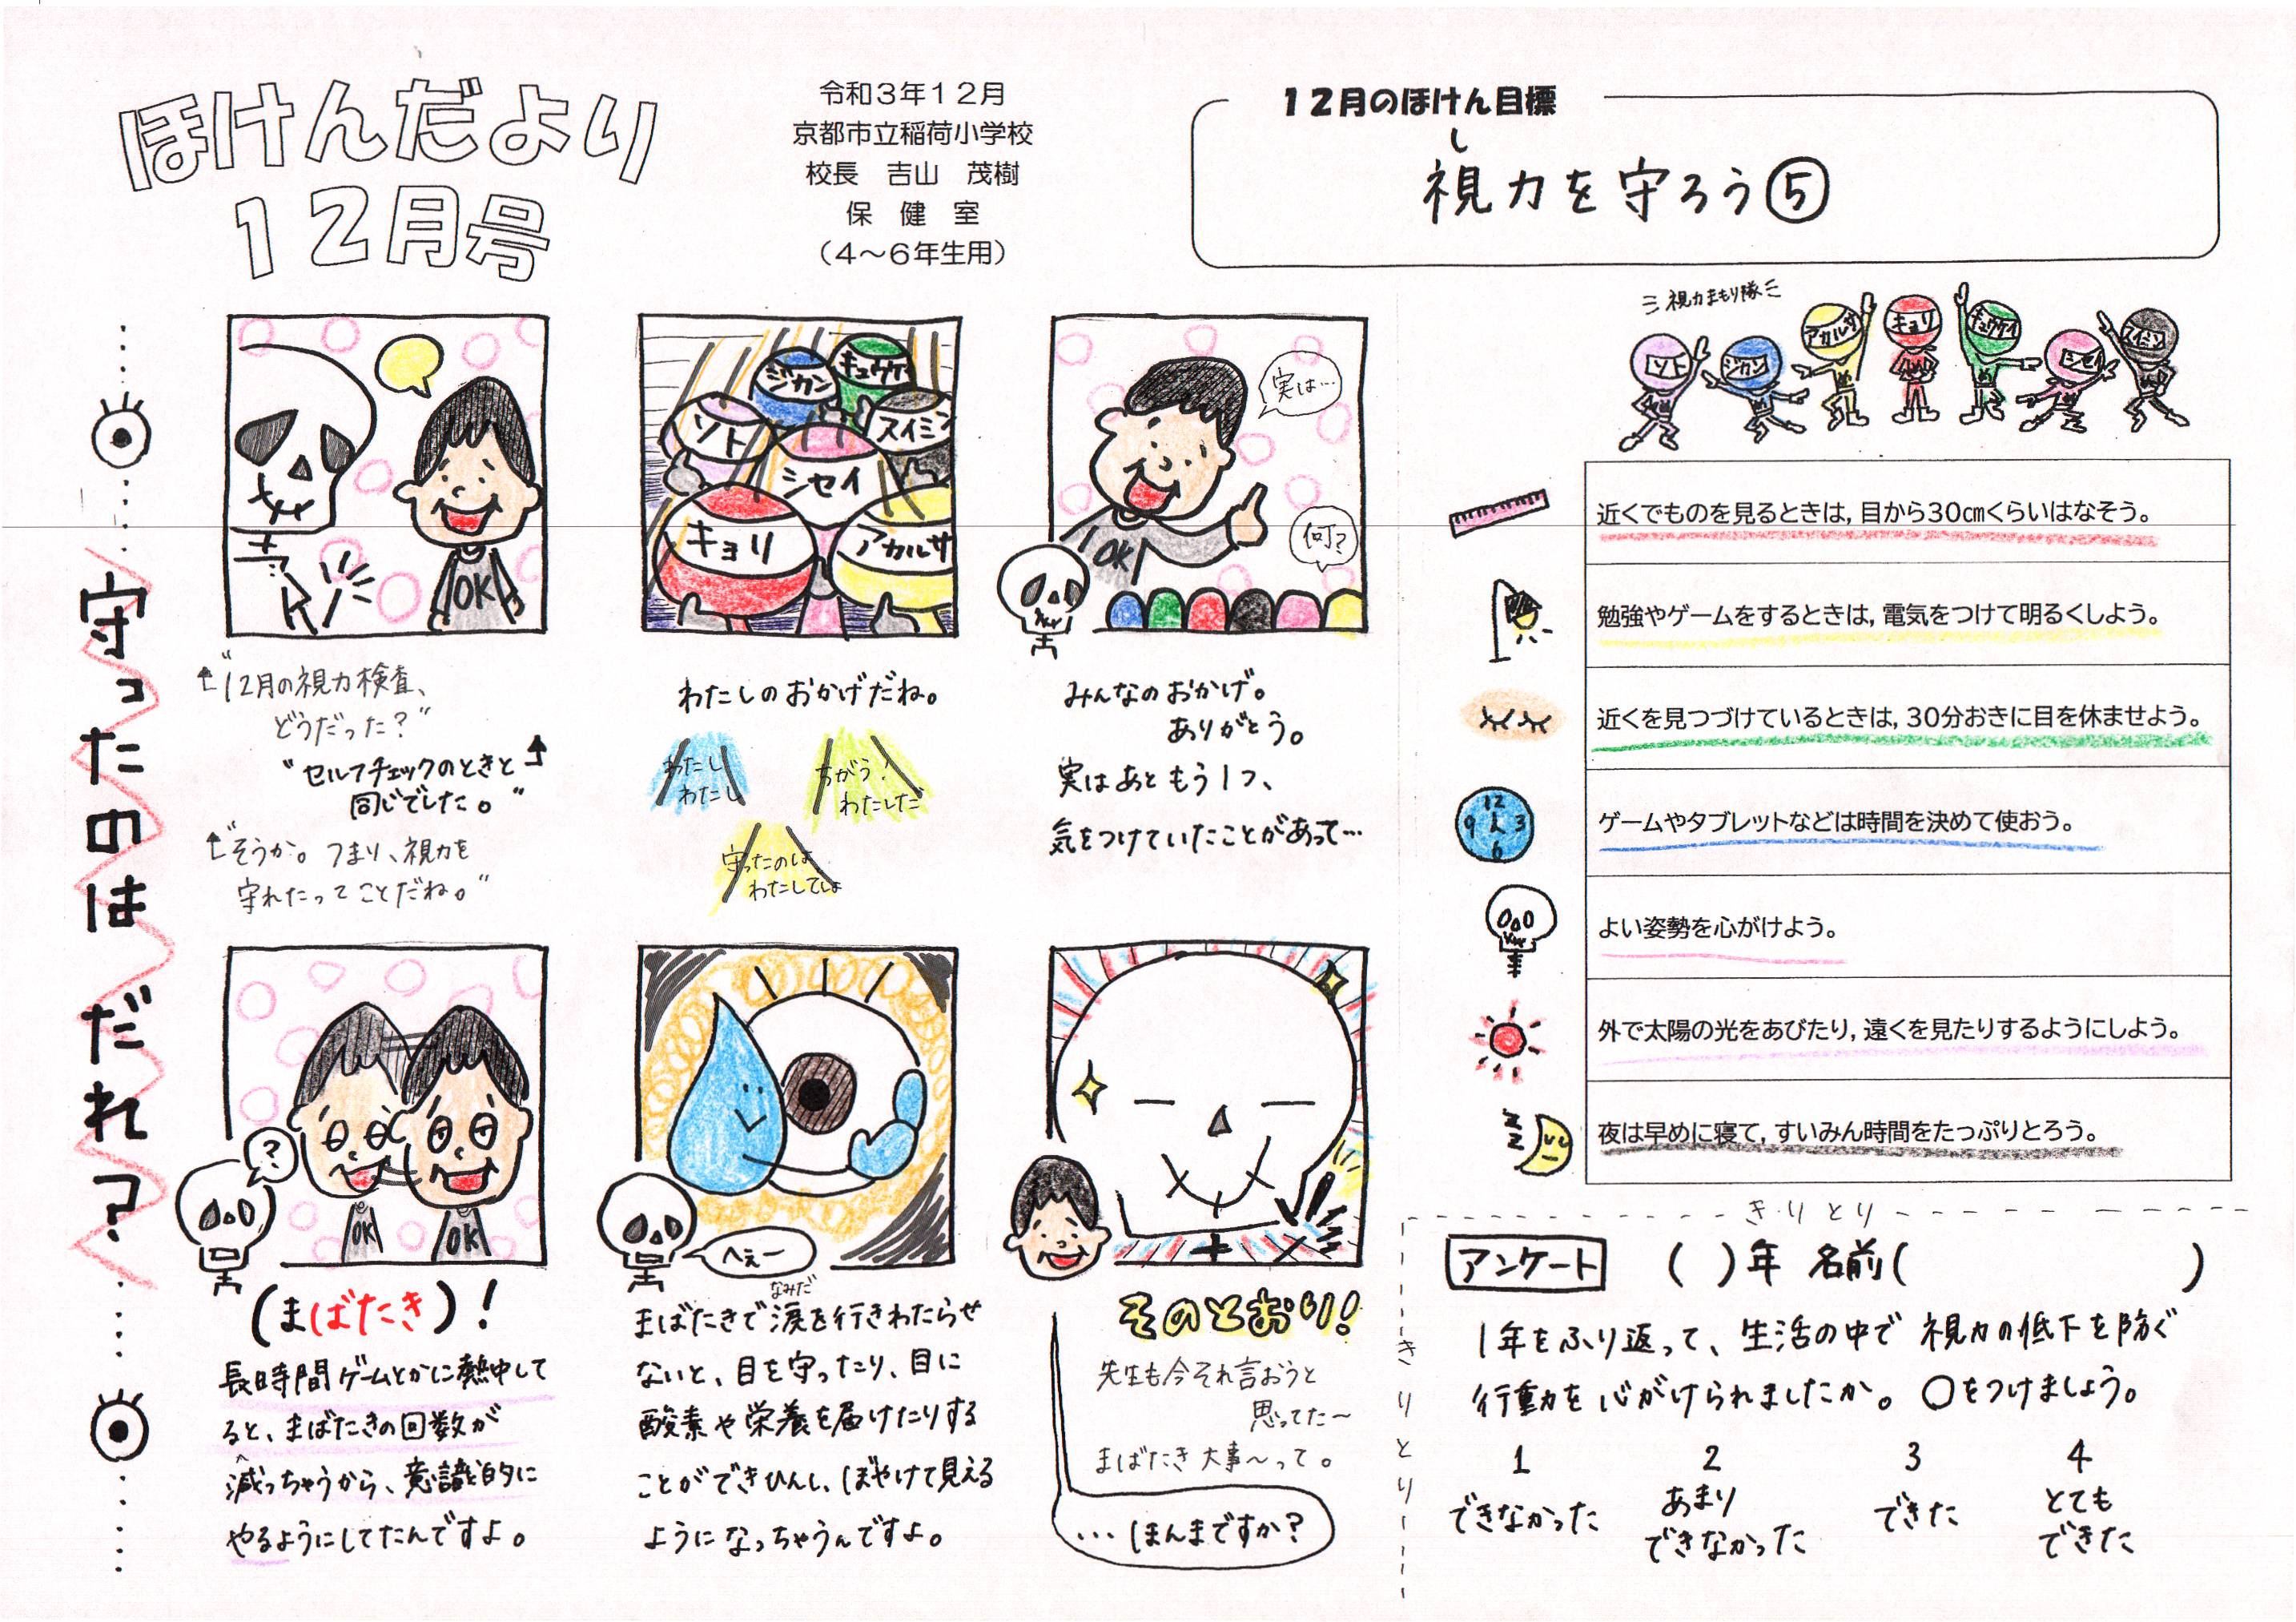 ほけんだより
12月号
令和3年12月
京都市立稲荷小学校
校長　吉山　茂樹
保　健　室
（4～6年生用）
12月のほけん目標
し
視力を守ろう⑤
守ったのは だれ？
OK
"12月の視力検査、
どうだった？"
"セルフチェックのときと
同じでした。"
"そうか。つまり、視力を
守れたってことだね。"
ジカン
キュウケイ
ソト
スイミン
シセイ
キョリ
アカルサ
わたしのおかげだね。
わたし
わたし
ちがう！
わたしだ
守ったのは
わたしでしょ
実は…
何？
OK
みんなのおかげ。
ありがとう。
実はあともう1つ、
気をつけていたことがあって…
?
OK
OK
(まばたき)！
長時間ゲームとかに熱中して
ると、まばたきの回数が
減っちゃうから、意識的に
やるようにしてたんですよ。
へぇー
なみだ
まばたきで涙を行きわたらせ
ないと、目を守ったり、目に
酸素や栄養を届けたりする
ことができひんし、ぼやけて見える
ようになっちゃうんですよ。
そのとおり！
先生も今それ言おうと
思ってた～
まばたき大事～って。
…ほんまですか？
視力まもり隊
ソト
ジカン
アカルサ
キョリ
キュウケイ
シセイ
スイミン
近くでものを見るときは，目から30㎝くらいはなそう。
勉強やゲームをするときは，電気をつけて明るくしよう。
近くを見つづけているときは，30分おきに目を休ませよう。
12
9 3
6
ゲームやタブレットなどは時間を決めて使おう。
よい姿勢を心がけよう。
外で太陽の光をあびたり，遠くを見たりするようにしよう。
夜は早めに寝て，すいみん時間をたっぷりとろう。
きりとり
きりとり
アンケート　(　)年 名前(　　　)
1年をふり返って、生活の中で視力の低下を防ぐ
行動を心がけられましたか。○をつけましょう。
1 2 3 4
できなかった あまりできなかった できた とてもできた